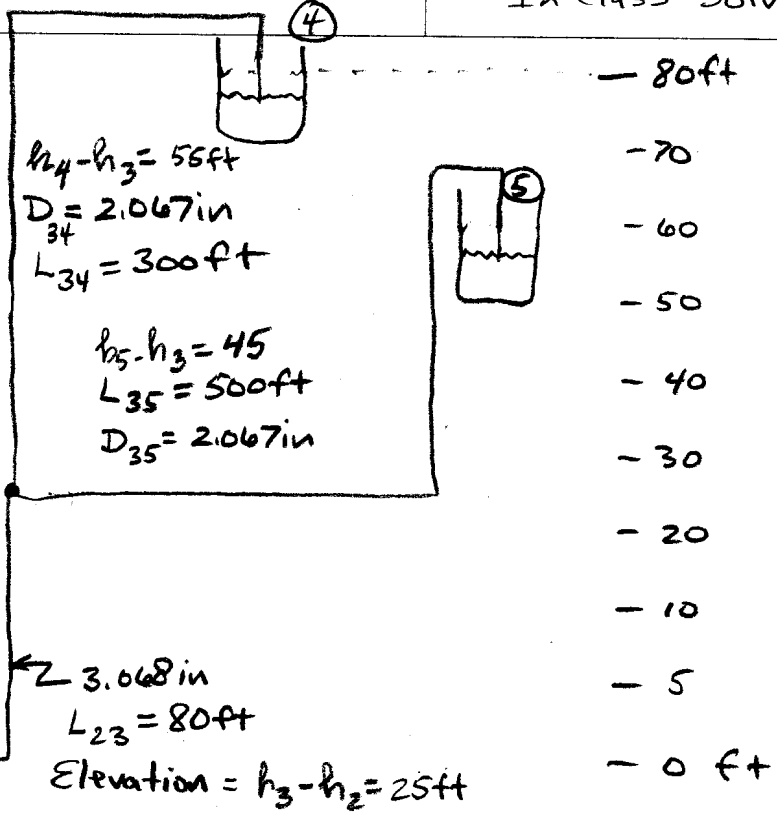 In Class Solv
4
80ft
h4-h3= 55ft
D34 = 2.067in
L34 = 300ft
70
5
60
50
h5-h3 = 45
L35 = 500ft
D35 = 2.067in
40
30
20
10
3.068in
L23 = 80ft
Elevation = h3-h2 = 25ft
5
0 ft